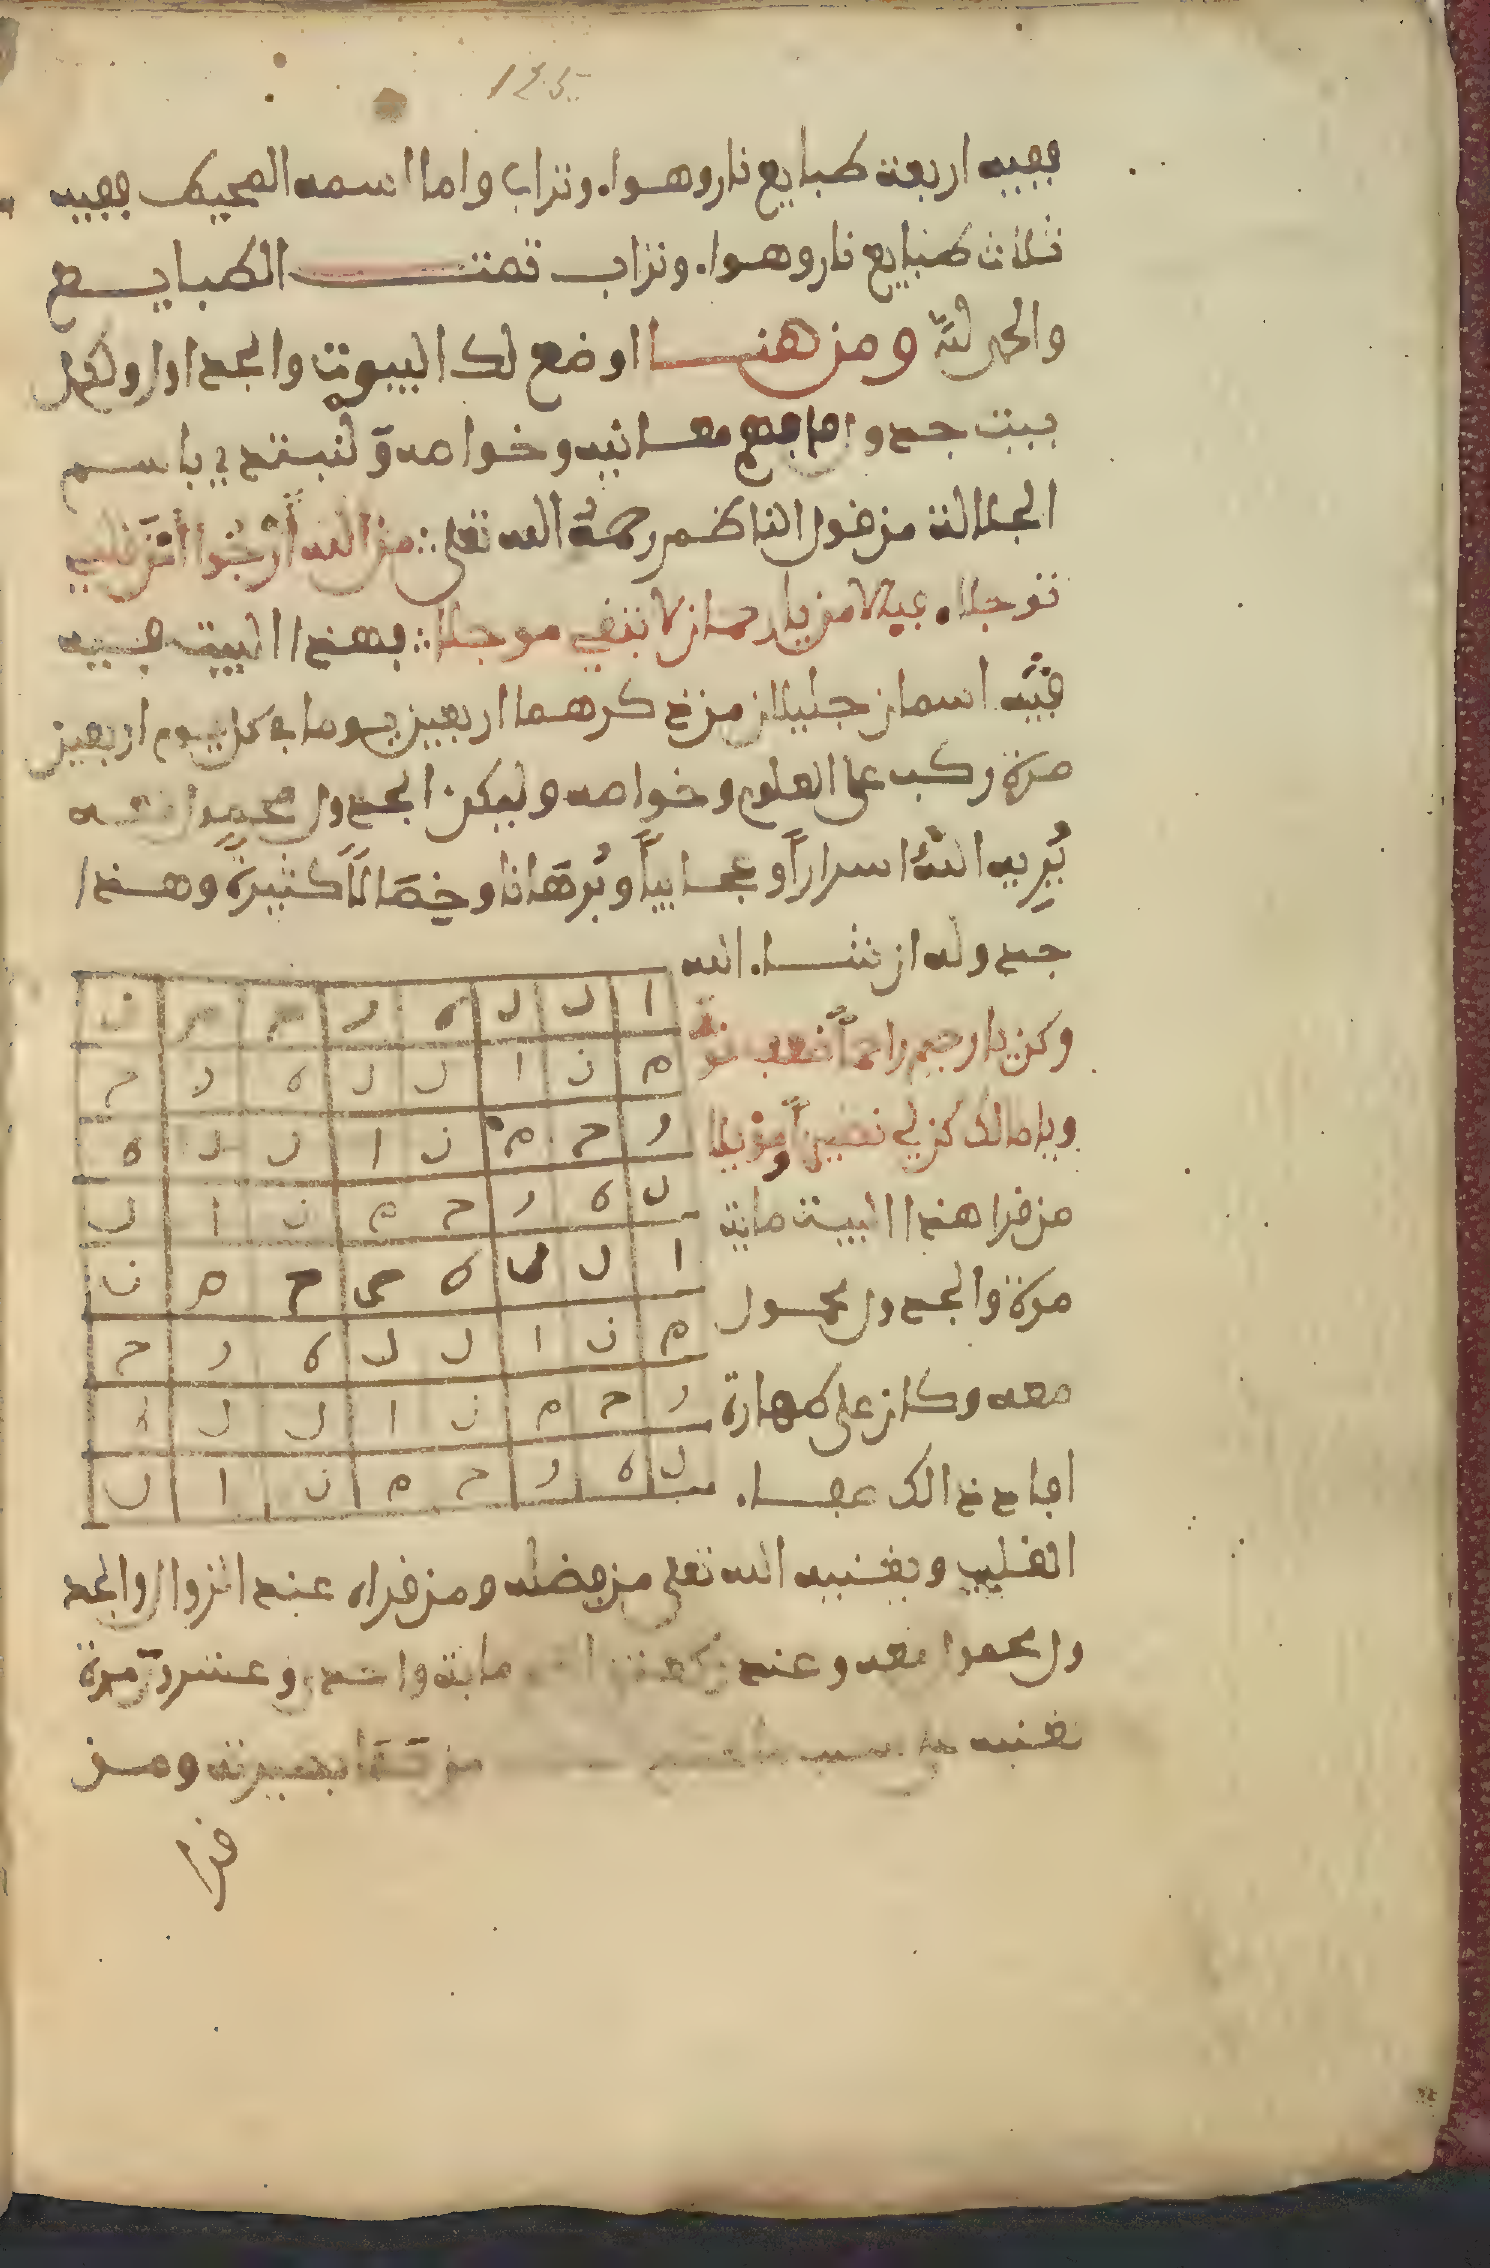 125
ففيه اربعة طبايع نار وهواء وتراب واما اسمه المحيط ففيه
ثلاث طبايع نار وهواء وتراب تمت الطبايع
والحمد لله ومن هنا اوضع لك البيوت والجداول ولكل
بيت جدول معانيه وخواصه ولنبتدي باسم
الجلالة من قول الناظم رحمه الله تعلى من الله أرجوا
توجلا يا رحمان لا تبقي موجلا فهذا البيت فيه
اسمان جليلان من ذكرهما اربعين يوما في كل يوم اربعين
مرة ركب على العلوم وخواصه وليكن الجدول
يُرِيه اللهُ اسراراً وعجايباً وبُرهَانا وخِصَالاً كثيرةً وهذا
جدوله ان شاء الله
ا ل ل ه ر ح م ن
م ن ا ل ل ه ر ح
ر ح م ن ا ل ل ه
ل ه ر ح م ن ا ل
ا ل ل ه ر ح م ن
م ن ا ل ل ه ر ح
ر ح م ن ا ل ل ه
ل ه ر ح م ن ا ل
وكن يا رحيم راحماً
ويا مالك كن لي نصيراً
من قرا هذا البيت ماية
مرة والجدول محمول
معه وكان على طهارة
افاد ذالك صفاء
القلب ويغنيه الله تعلى من فضله ومن قراه عند الزوال والجد
ول معه وعند ماية واحدى وعشرون مرة
ومن
قرا